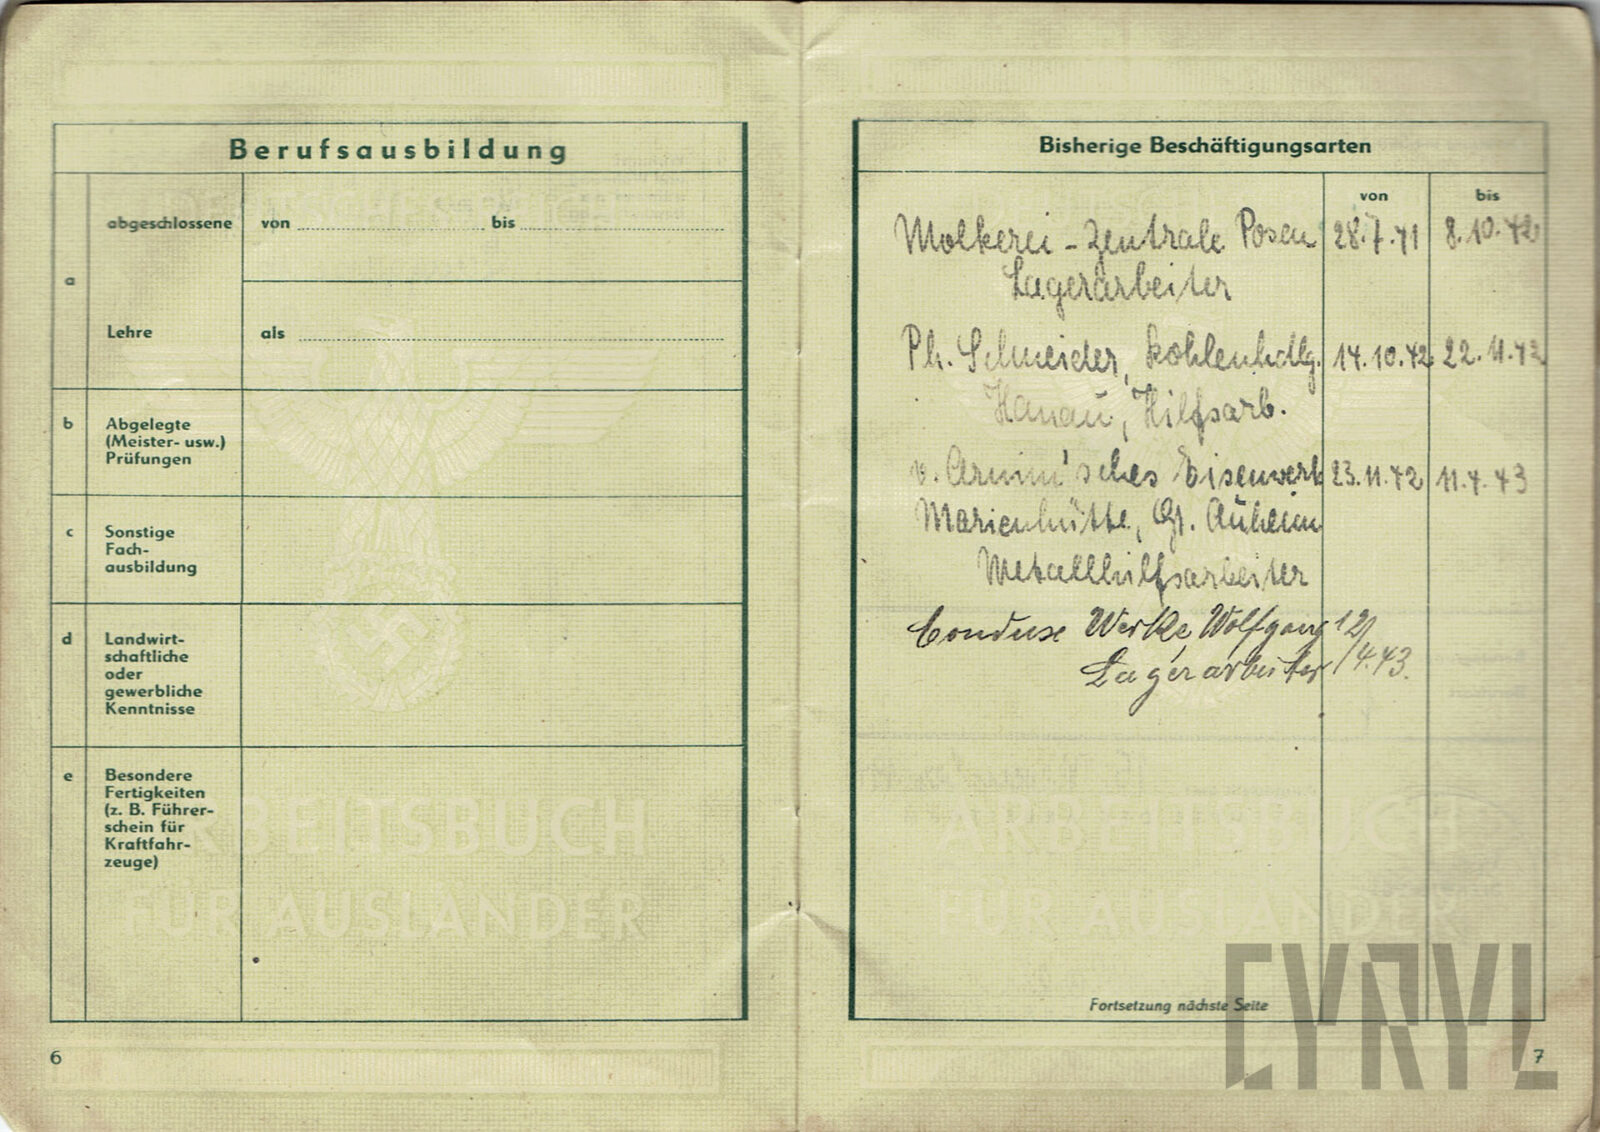 Berufsausbildung
a
abgeschlossene
von
bis
Lehre
als
b
Abgelegte
(Meister- usw.)
Prüfungen
c
Sonstige
Fach-
ausbildung
d
Landwirt-
schaftliche
oder
gewerbliche
Kenntnisse
e
Besondere
Fertigkeiten
(z. B. Führer-
schein für
Kraftfahr-
zeuge)
ARBEITSBUCH
FÜR AUSLÄNDER
6
Bisherige Beschäftigungsarten
von bis
Molkerei - Zentrale Posen 28.7.41 8.10.42
Lagerarbeiter
Ph. Schneider, Kohlenhdlg. 14.10.42 22.11.42
Hanau, Hilfsarb.
v. Arnim'sches Eisenwerk 23.11.42 11.4.43
Marienhütte, Gr. Auheim
Metallhilfsarbeiter
Werke, Wolfgang 12/
Lagerarbeiter 4.43.
ARBEITSBUCH
FÜR AUSLÄNDER
Fortsetzung nächste Seite
7
CYRYL